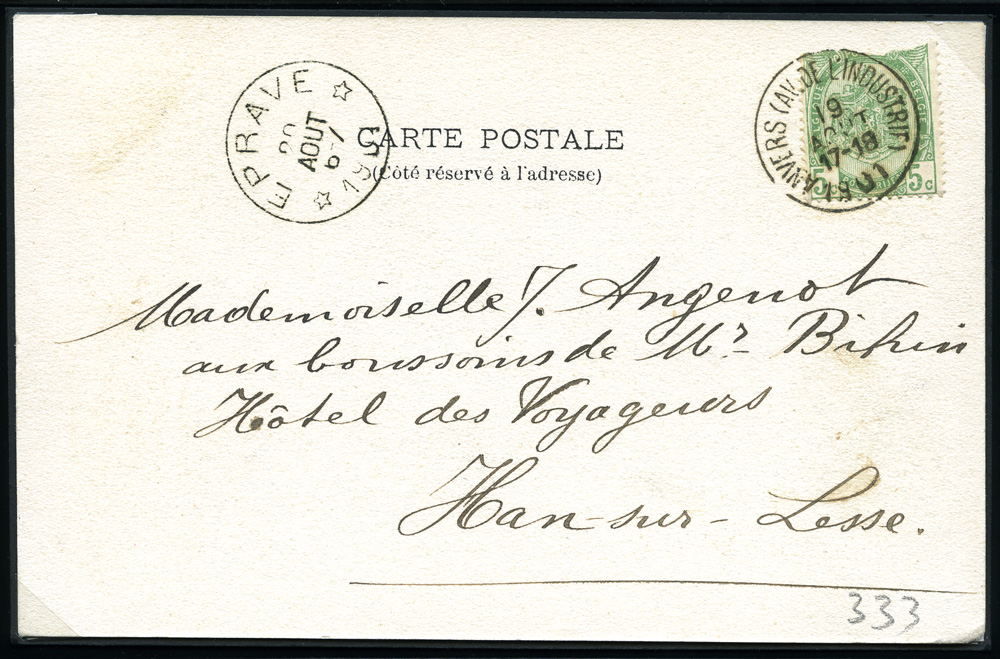 EPRAVE
20
AOUT
ANVERS (AV. DE L'INDUSTRIE)
19
AOUT
17-18
01
5 5c
CARTE POSTALE
(Côté réservé à l'adresse)
Mademoiselle J. Angenot
aux bonssoins de Mr Bihin
Hôtel des Voyageurs
Han-sur-Lesse.
333